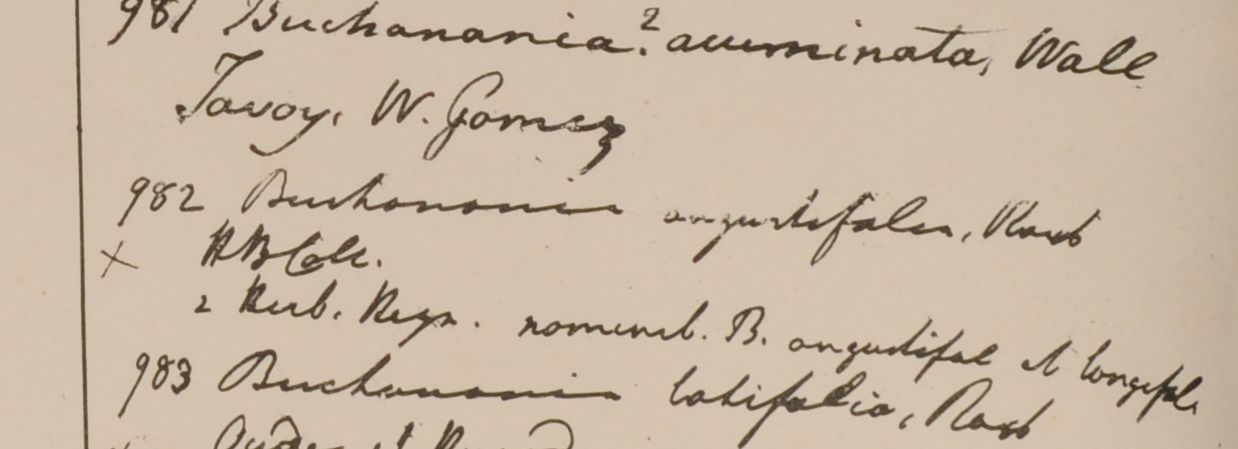 981 Buchanania? acuminata, Wall
Tavoy, W. Gomez
982 Buchanania angustifolia, Roxb
× HBCalc.
2 Herb. Heyn. nominib. B. angustifol et longifol
983 Buchanania latifolia, Roxb
et